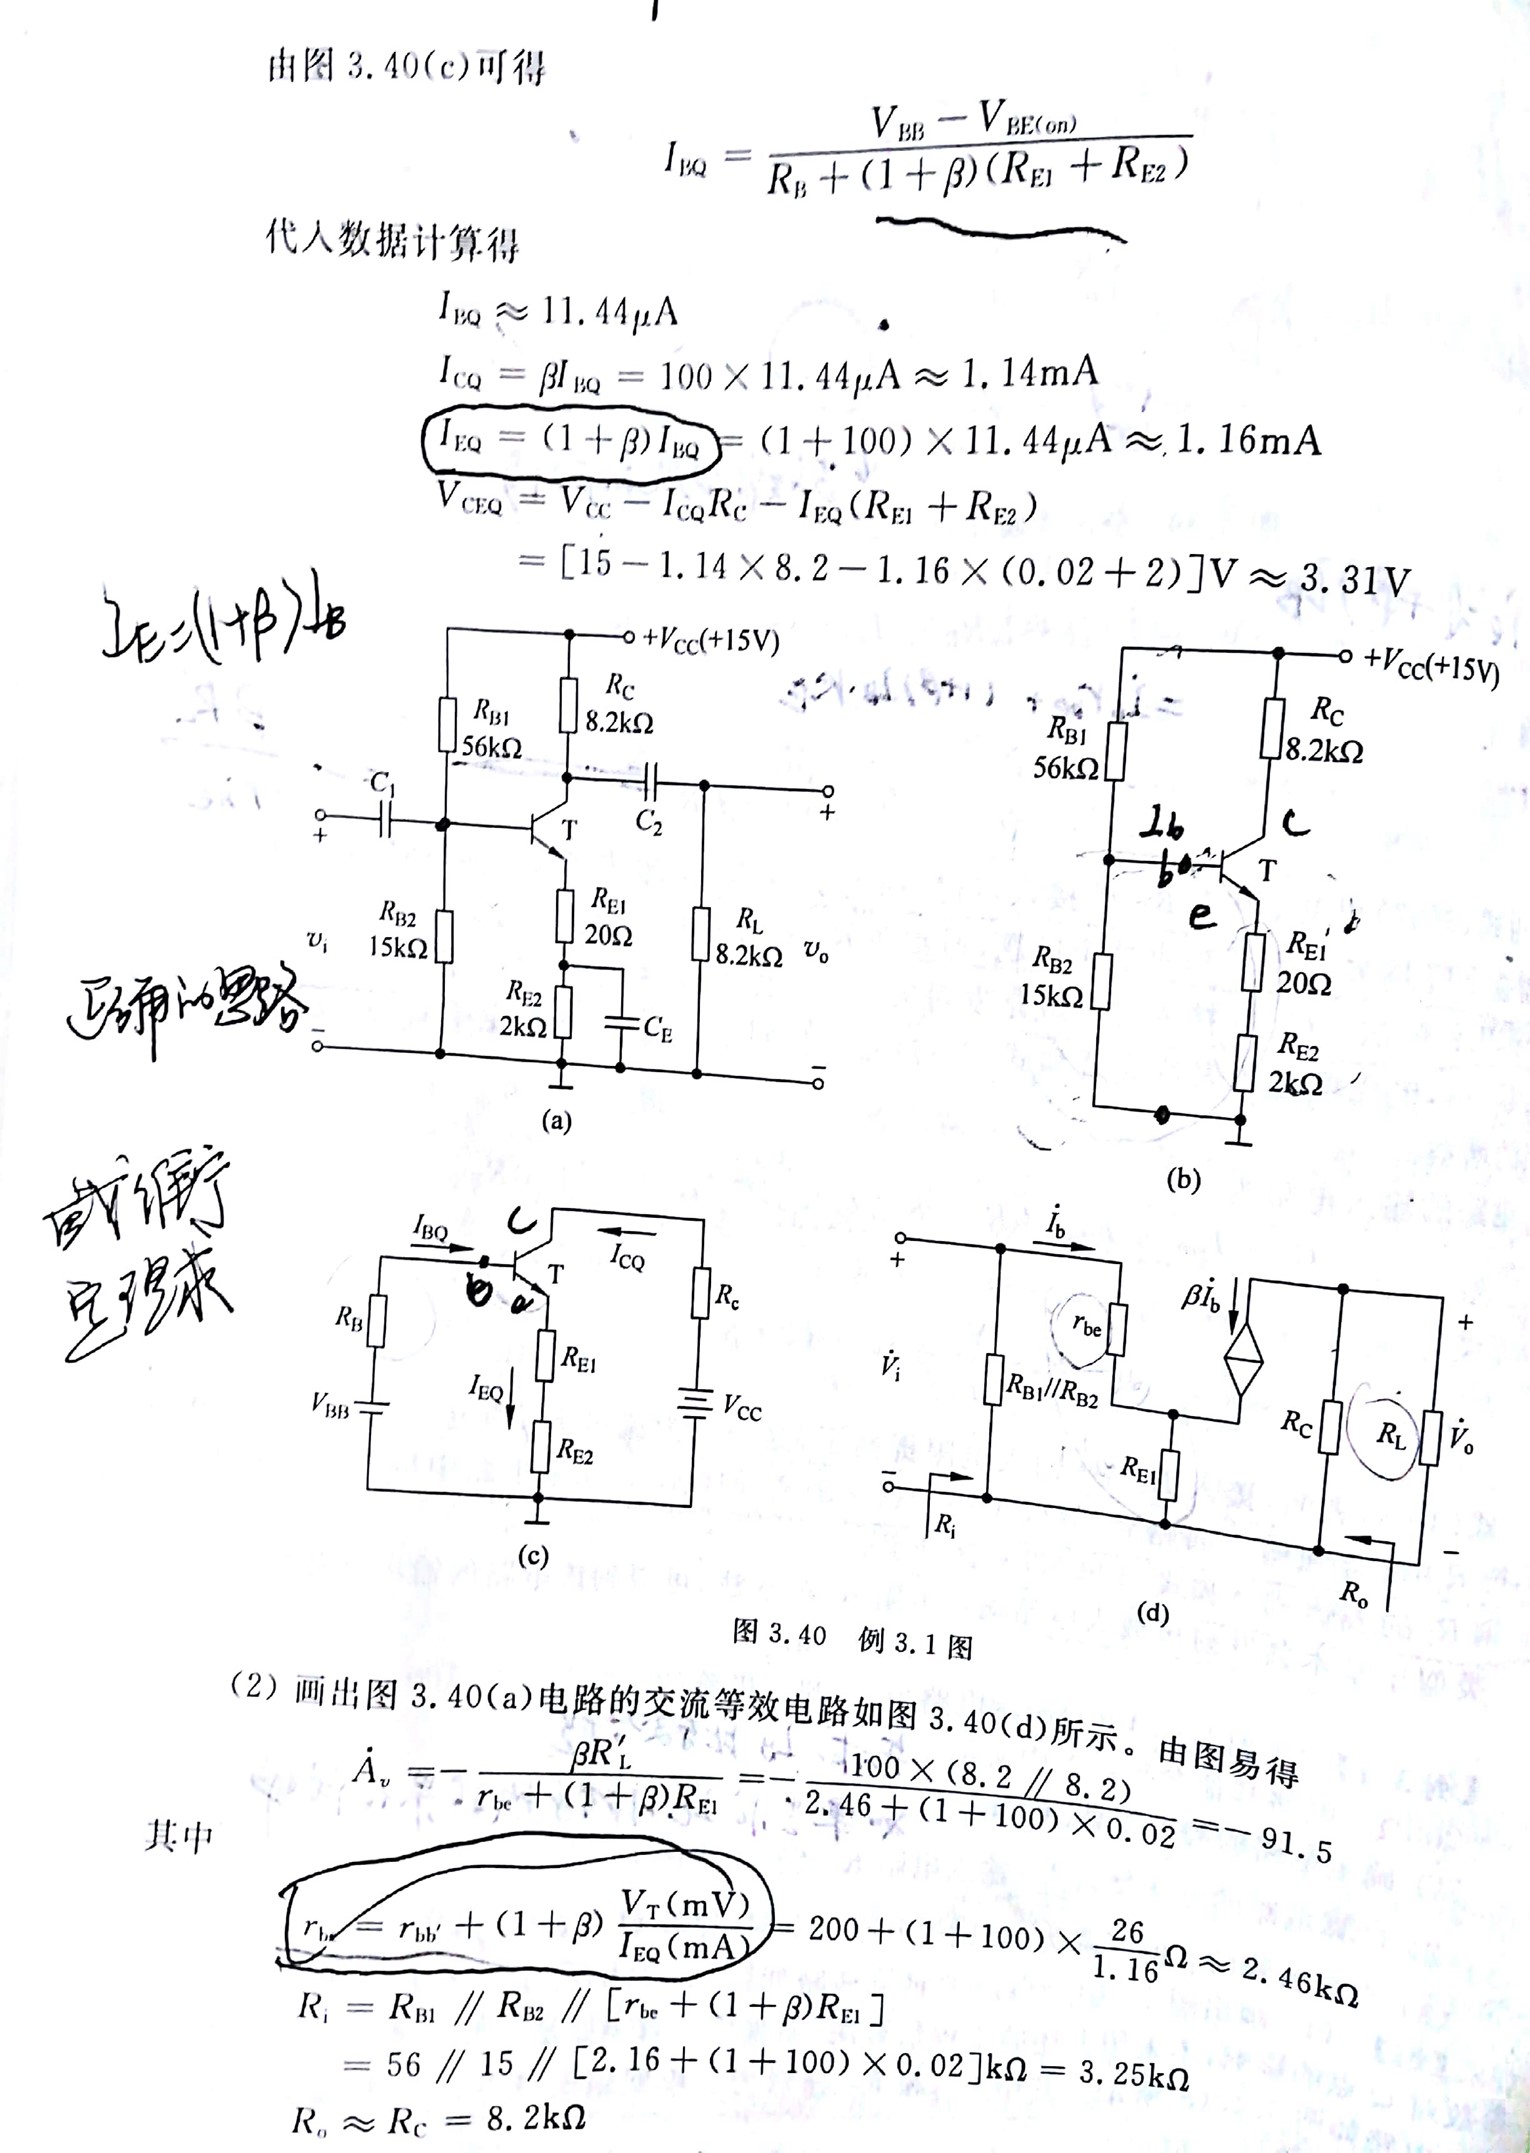 由图 3.40(c)可得
I_BQ = (V_BB − V_BE(on)) / (R_B + (1+β)(R_E1 + R_E2))
代入数据计算得
I_BQ ≈ 11.44μA
I_CQ = βI_BQ = 100 × 11.44μA ≈ 1.14mA
I_EQ = (1+β)I_BQ = (1+100) × 11.44μA ≈ 1.16mA
V_CEQ = V_CC − I_CQ R_C − I_EQ(R_E1 + R_E2)
= [15 − 1.14 × 8.2 − 1.16 × (0.02 + 2)]V ≈ 3.31V
I_E=(1+β)I_B
+V_CC(+15V)
R_C
8.2kΩ
R_B1
56kΩ
C_1
C_2
T
+
+
R_B2
15kΩ
R_E1
20Ω
R_L
8.2kΩ
v_i
v_o
R_E2
2kΩ
C_E
−
−
(a)
+V_CC(+15V)
R_B1
56kΩ
R_C
8.2kΩ
I_b
c
b
T
e
R_B2
15kΩ
R_E1
20Ω
R_E2
2kΩ
(b)
正确的思路
戴维宁
定理求
I_BQ
c
I_CQ
b
T
R_B
R_c
R_E1
I_EQ
V_BB
V_CC
R_E2
(c)
İ_b
+
r_be
βİ_b
+
V̇_i
R_B1//R_B2
R_C
R_L
V̇_o
R_E1
−
R_i
−
R_o
(d)
图 3.40 例 3.1 图
(2) 画出图 3.40(a)电路的交流等效电路如图 3.40(d)所示。由图易得
Ȧ_v = − βR′_L / (r_be + (1+β)R_E1) = − 100 × (8.2 // 8.2) / (2.46 + (1+100) × 0.02) = − 91.5
其中
= r_bb′ + (1+β) V_T(mV) / I_EQ(mA) = 200 + (1+100) × 26/1.16 Ω ≈ 2.46kΩ
R_i = R_B1 // R_B2 // [r_be + (1+β)R_E1]
= 56 // 15 // [2.16 + (1+100) × 0.02]kΩ = 3.25kΩ
R_o ≈ R_C = 8.2kΩ